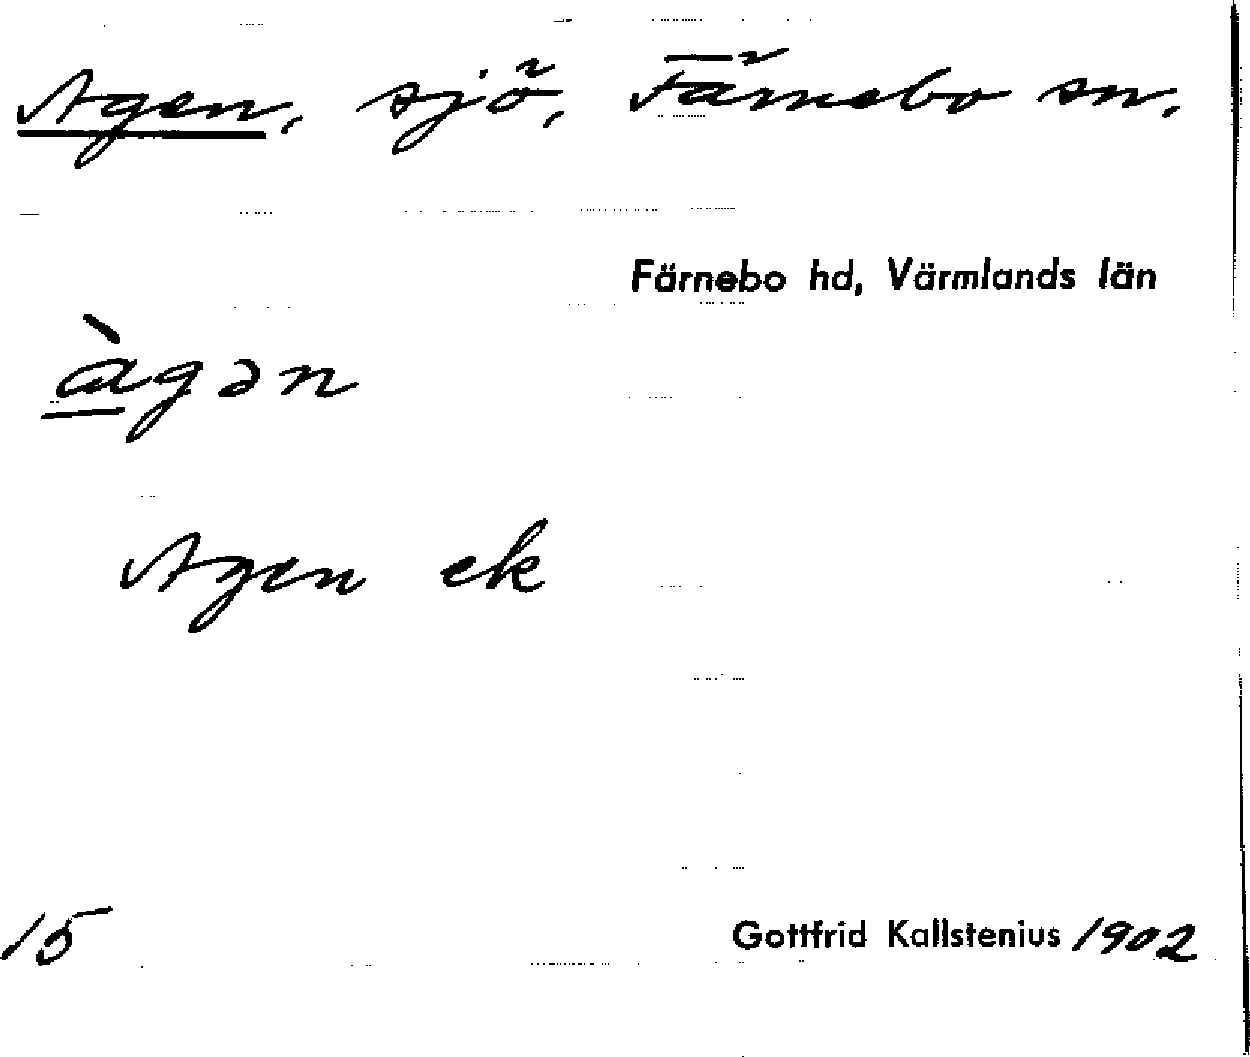 Agen, sjö, Färnebo sn,
Färnebo hd, Värmlands län
àgən
Agen ek
15
Gottfrid Kallstenius 1902